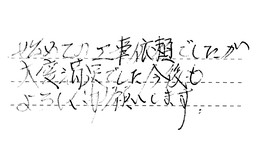 始めての工事依頼でしたが
大変満足でした今後も
よろしくお願いします。